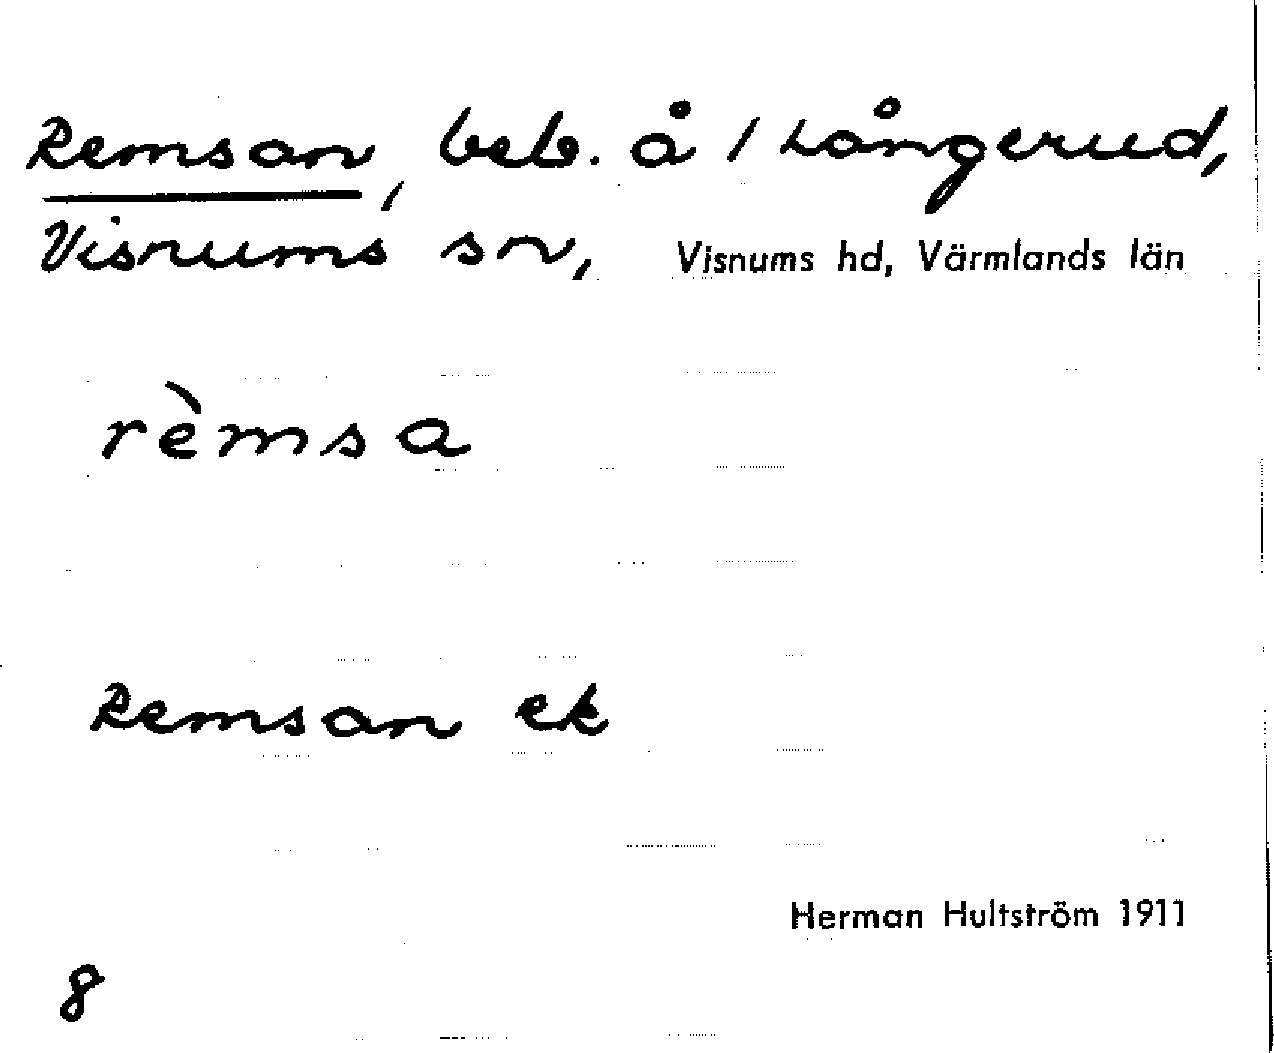 Remsan, beb. å 1 Långerud,
Visnums sn, Visnums hd, Värmlands län
rèmsa
Remsan ek
Herman Hultström 1911
8